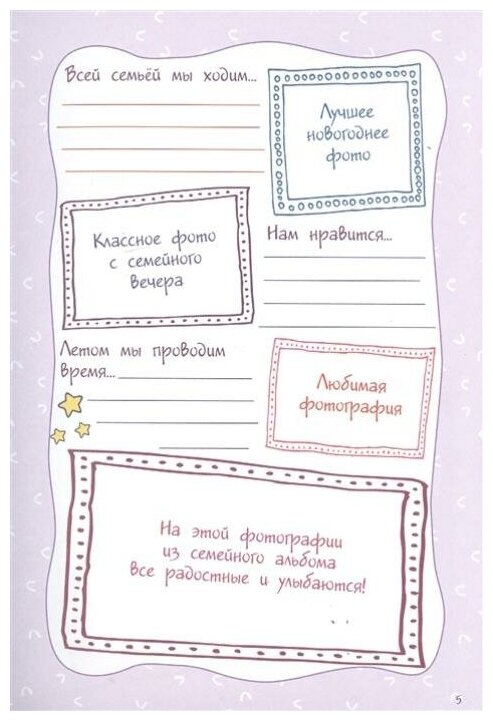 Всей семьёй мы ходим...
Лучшее
новогоднее
фото
Классное фото
с семейного
вечера
Нам нравится...
Летом мы проводим
время...
Любимая
фотография
На этой фотографии
из семейного альбома
все радостные и улыбаются!
5